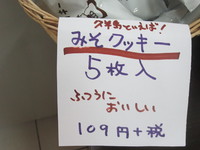 久米島といえば!
みそクッキー
5枚入
ふつうに
おいしい
109円+税